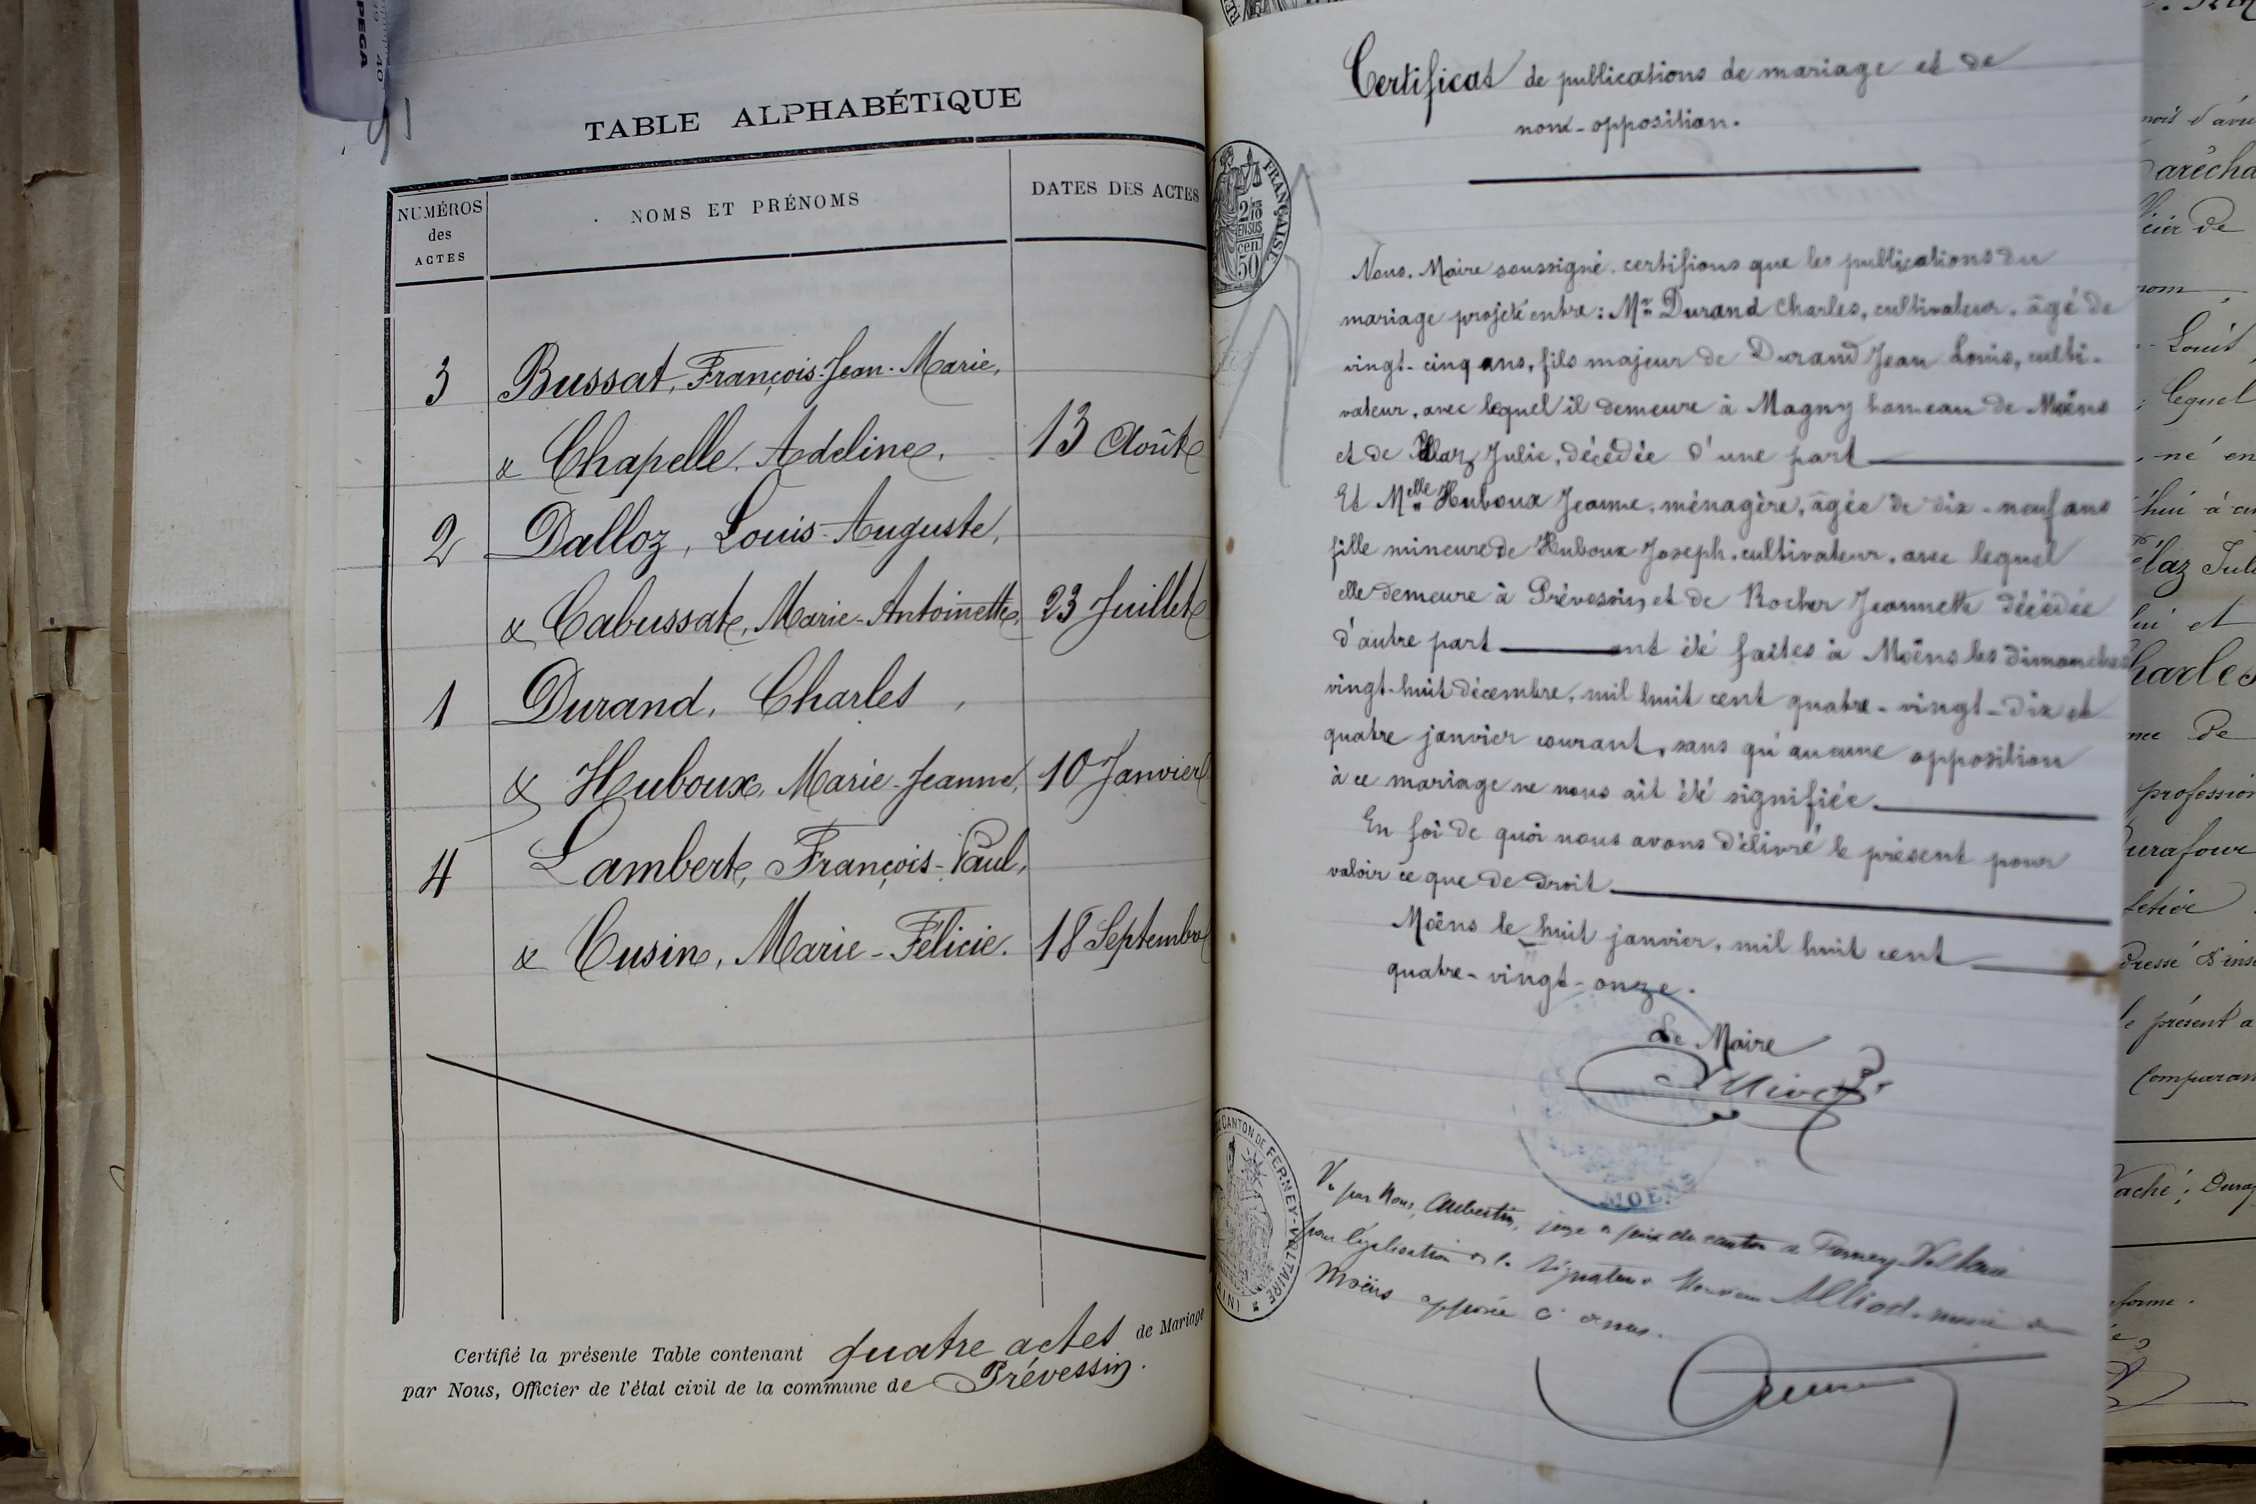 PEGA
40
TABLE ALPHABÉTIQUE
NUMÉROS
des
ACTES
NOMS ET PRÉNOMS
DATES DES ACTES
3 Bussat, François-Jean-Marie,
& Chapelle, Adeline, 13 Août
2 Dalloz, Louis-Auguste,
& Cabussat, Marie-Antoinette, 23 Juillet
1 Durand, Charles,
& Huboux, Marie-Jeanne, 10 Janvier
4 Lambert, François-Paul,
& Cusin, Marie-Félicie. 18 Septembre
Certifié la présente Table contenant quatre actes de Mariage
par Nous, Officier de l'état civil de la commune de Prévessin.
Certificat de publications de mariage et de
non-opposition.
FRANÇAISE
2/10
EN SUS
cen.
50
Nous, Maire soussigné, certifions que les publications du
mariage projeté entre : Mr Durand Charles, cultivateur, âgé de
vingt-cinq ans, fils majeur de Durand Jean Louis, culti-
vateur, avec lequel il demeure à Magny hameau de Moëns
et de Julie, décédée d'une part
Et Melle Huboux Jeanne, ménagère, âgée de dix-neuf ans
fille mineure de Huboux Joseph, cultivateur, avec lequel
elle demeure à Prévessin, et de Rocher Jeannette décédée
d'autre part ont été faites à Moëns les dimanches
vingt-huit décembre, mil huit cent quatre-vingt-dix et
quatre janvier courant, sans qu'aucune opposition
à ce mariage ne nous ait été signifiée
En foi de quoi nous avons délivré le présent pour
valoir ce que de droit
Moëns le huit janvier, mil huit cent
quatre-vingt-onze.
Le Maire
MOENS
CANTON DE FERNEY-VOLTAIRE
(AIN)
Vu par Nous, Aubertin, juge de paix du canton de Ferney-Voltaire
pour légalisation de la signature Monsieur Alliod, maire de
Moëns apposée ci-dessus.
Louis
lequel
né en
Jul
et
harles
de
profession
le présent a
Comparan